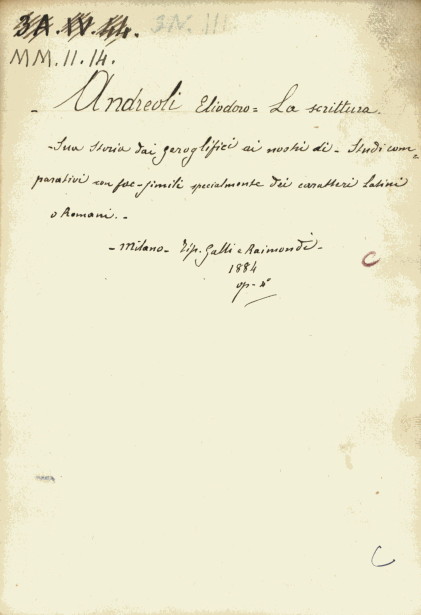 3A.XV.44. 3N.III
MM.II.14.
- Andreoli Eliodoro = La scrittura.
- Sua storia dai geroglifici ai nostri dì - Studi com=
parativi con fac-simili specialmente dei caratteri Latini
o Romani. -
- Milano - Tip. Galli e Raimondi -
1884
op-4°
C
C